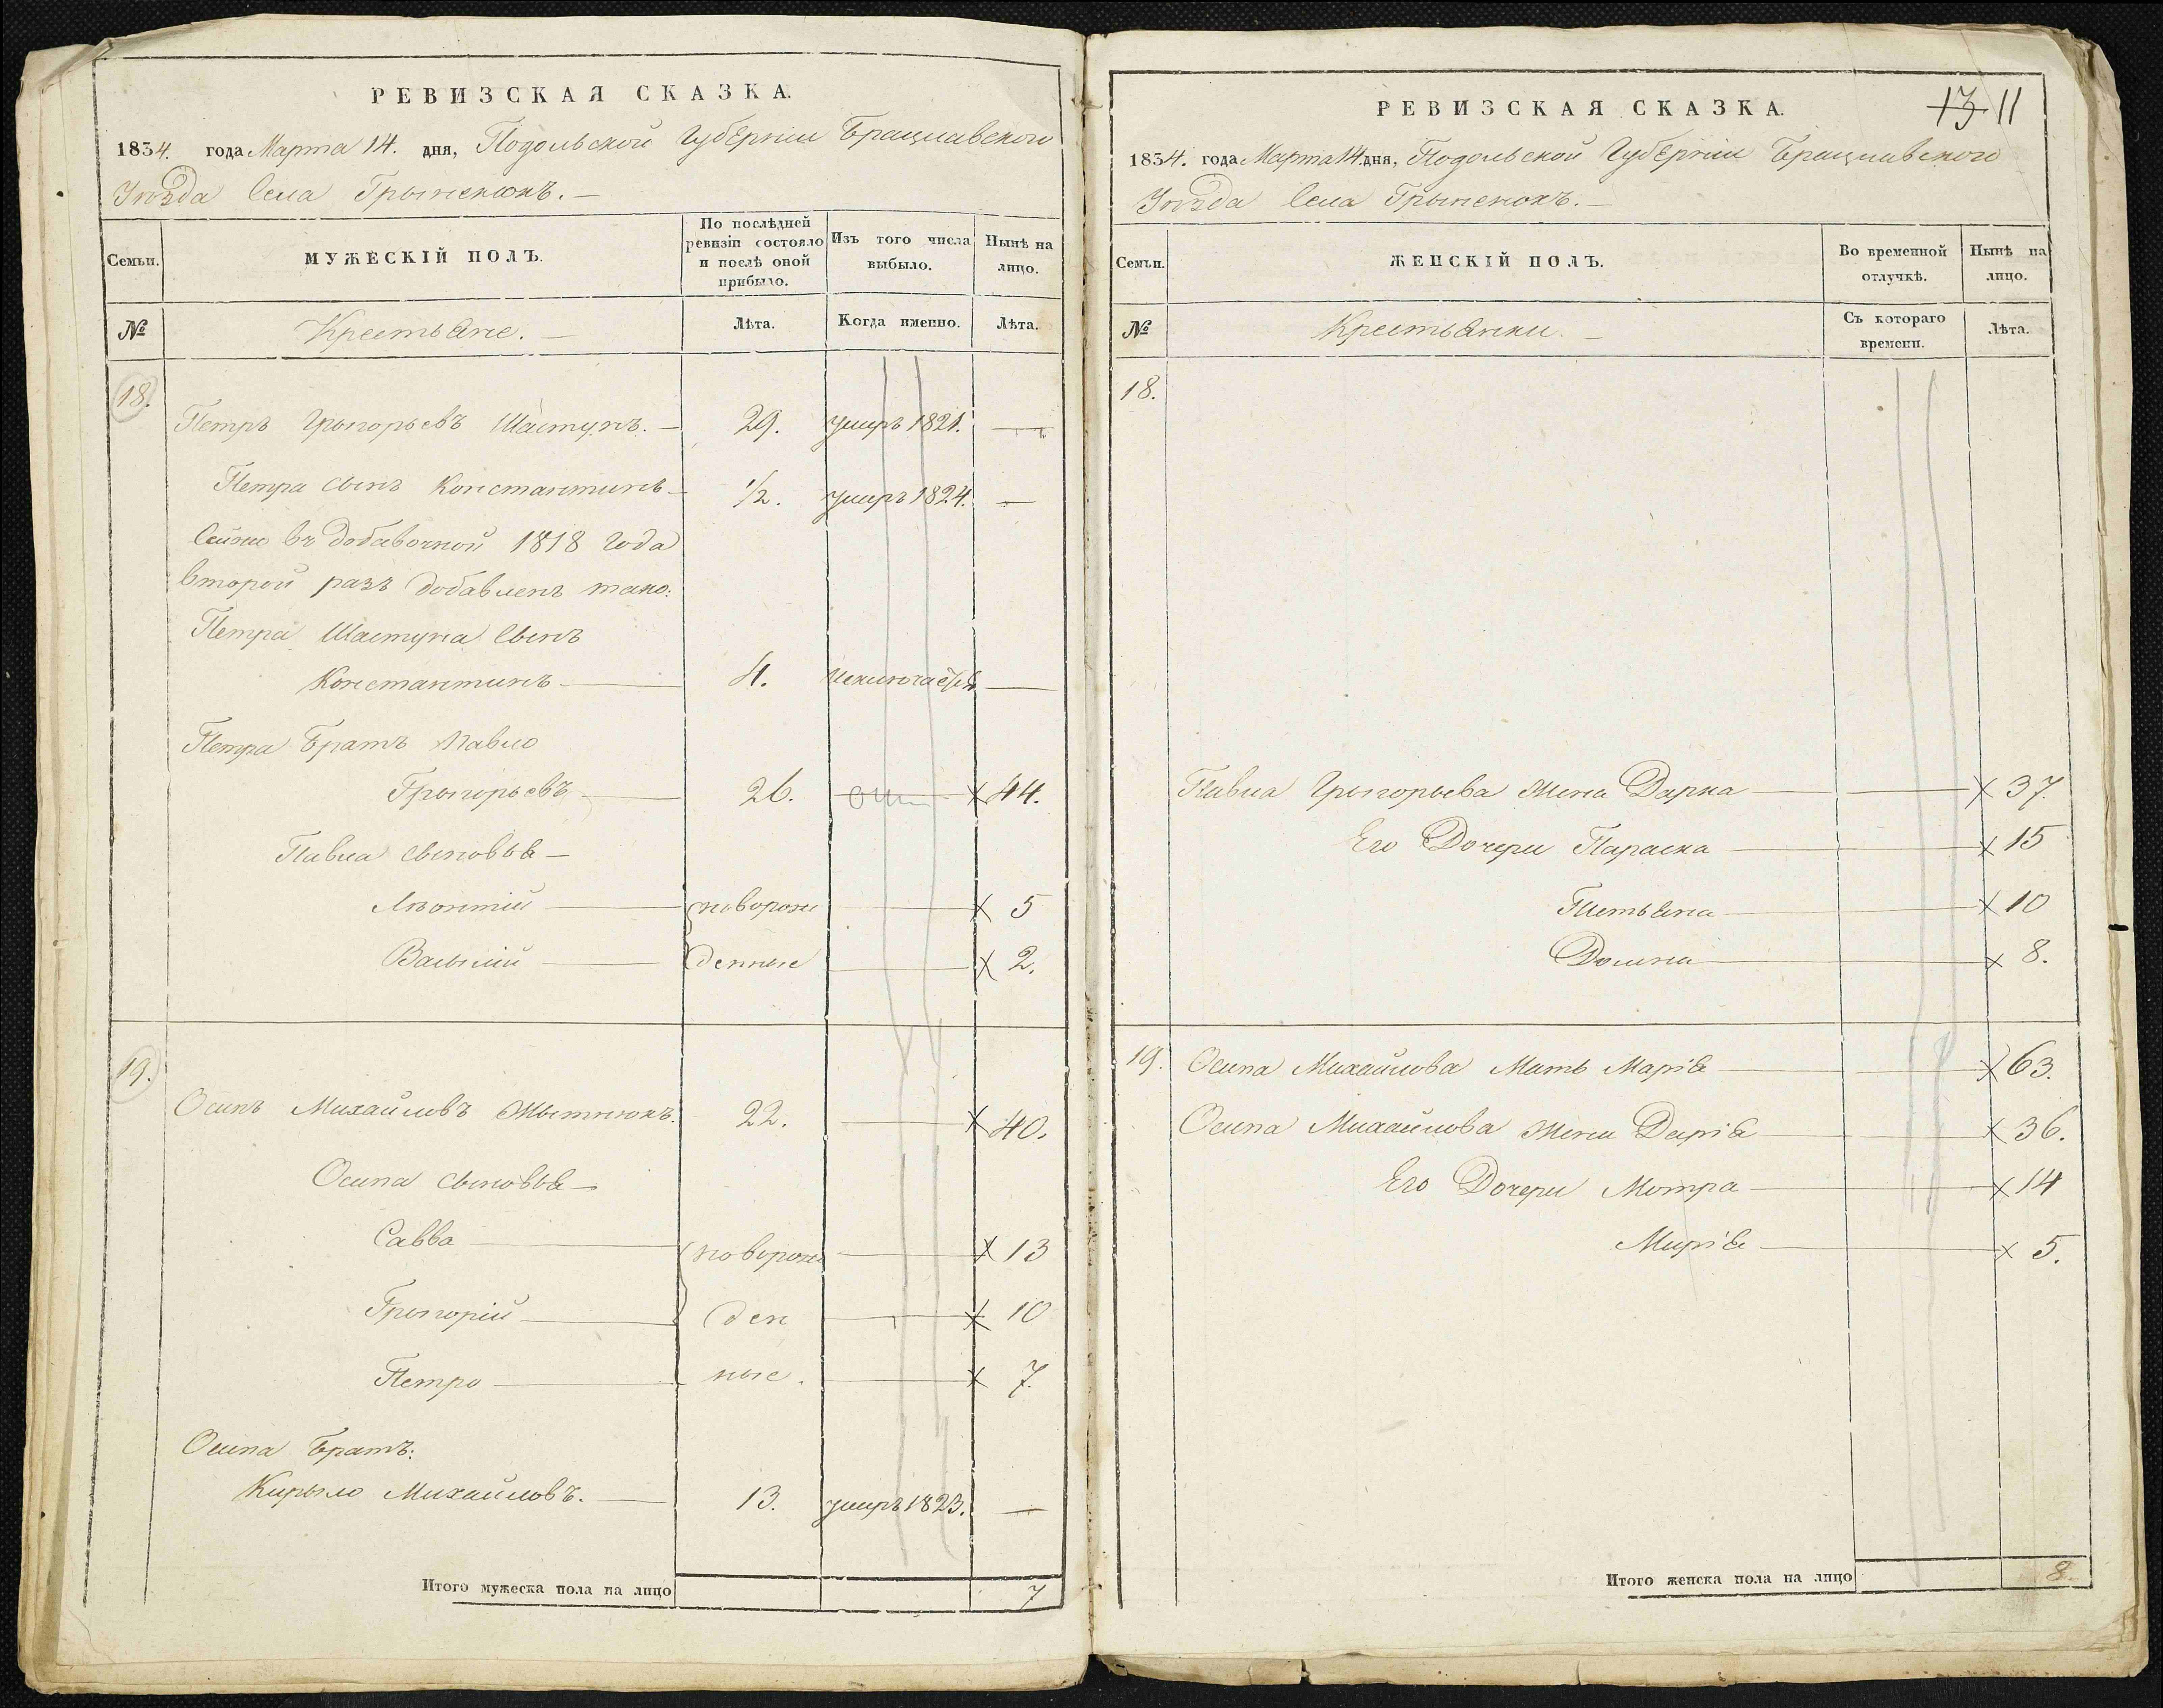 РЕВИЗСКАЯ СКАЗКА.
1834. года Марта 14. дня, Подольской Губерніи Брацлавского
Уѣзда Села Грыненокъ. —
Семьи.
МУЖЕСКІЙ ПОЛЪ.
По послѣдней ревизіи состояло и послѣ оной прибыло.
Изъ того числа выбыло.
Нынѣ на лицо.
№
Крестьяне. —
Лѣта.
Когда именно.
Лѣта.
18.
Петръ Грыгорьевъ Шастунъ. — 29. умеръ 1821. —
Петра сынъ Константинъ — 1/2. умеръ 1824. —
въ добавочной 1818 года
второй разъ добавленъ како:
Петра Шастуна Сынъ
Константинъ — 4. исключается —
Петра Братъ Павло
Грыгорьевъ — 26. — х 44.
Павла сыновья —
Лѣонтій — новорож — х 5
Васылій — денные — х 2.
19.
Осипъ Михайловъ 22. — х 40.
Осипа сыновья —
Савва — новорож — х 13
Грыгорій — ден — х 10
Петро — ные. — х 7.
Осипа Братъ:
Кирыло Михайловъ. — 13. умеръ 1823. —
Итого мужеска пола на лицо 7
РЕВИЗСКАЯ СКАЗКА.
13 11
1834. года Марта 14 дня, Подольской Губерніи Брацлавского
Уѣзда Села Грыненокъ. —
Семьи.
ЖЕНСКІЙ ПОЛЪ.
Во временной отлучкѣ.
Нынѣ на лицо.
№
Крестьянки. —
Съ котораго времени.
Лѣта.
18.
Павла Грыгорьева жена Дарка — х 37.
Его Дочери Параска — х 15
Татьяна — х 10
Домна — х 8.
19. Осипа Михайлова Мать Марія — х 63.
Осипа Михайлова жена Дарія — х 36.
Его Дочери Мотра — х 14
Марія — х 5.
Итого женска пола на лицо 8.